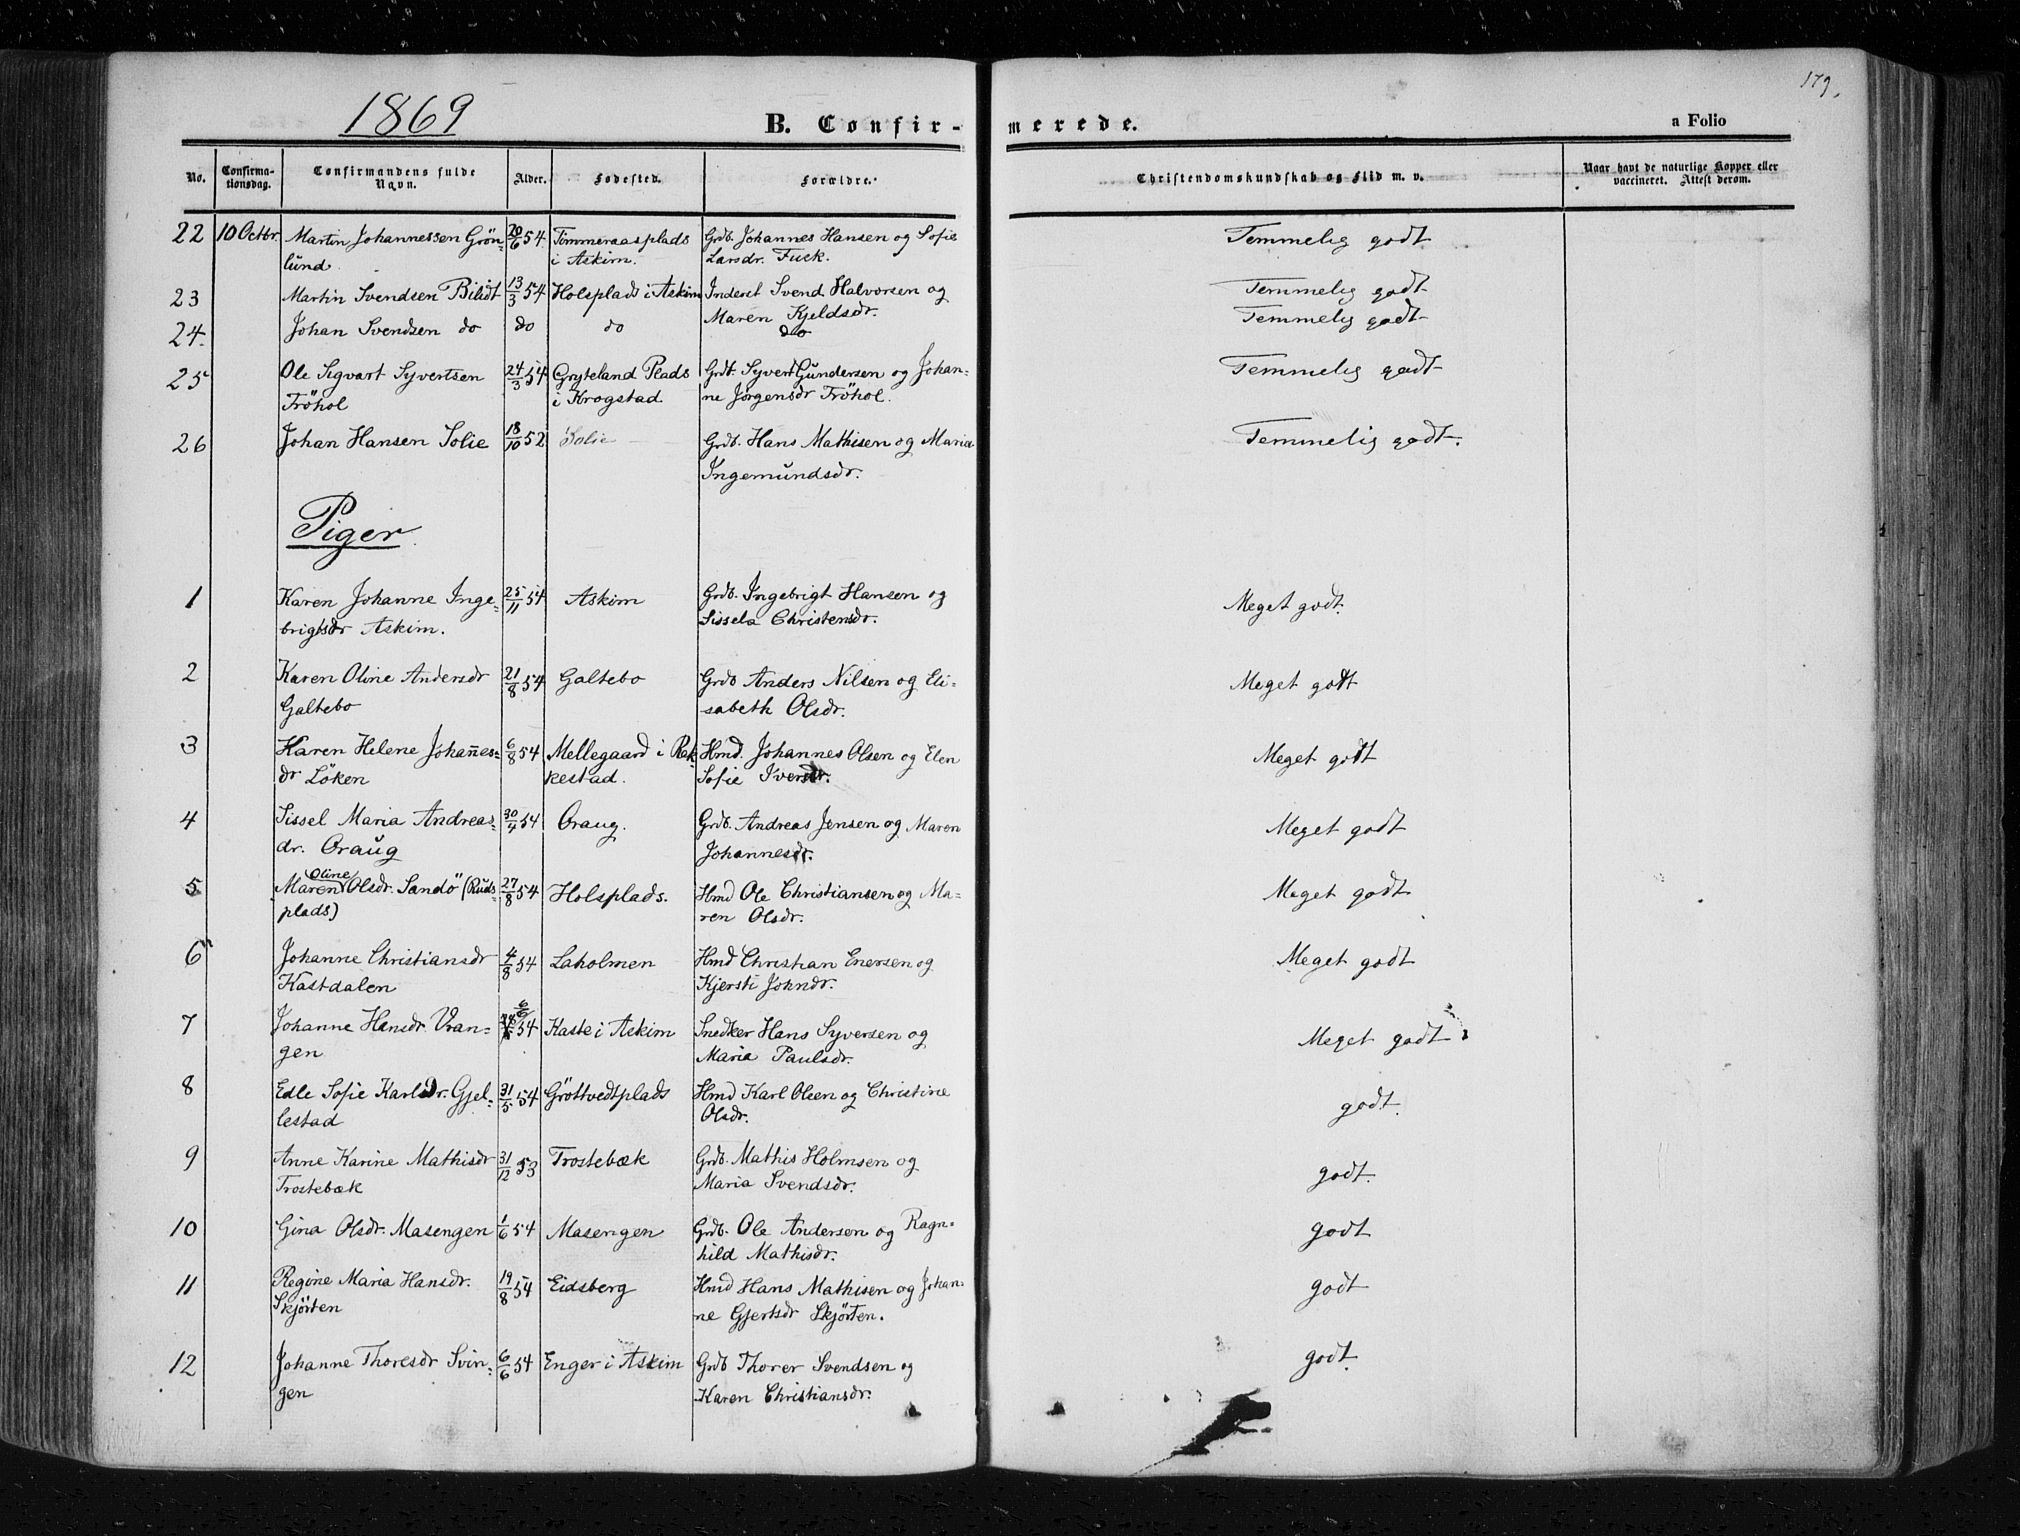 179.
1869
B. Confir-
merede.
a Folio
No.
Confirma-
tionsdag.
Confirmandens fulde
Navn.
Alder.
Fødested.
Forældre.
Christendomskundskab og Flid m. v.
Naar havt de naturlige Kopper eller
vaccineret. Attest derom.
22 10 Octbr. Martin Johannessen Grön- 20/6 54. Timmeraasplads Grdb. Johannes Hansen og Sofie Temmelig godt
lund. i Askim. Larsdr. Fusk.
23 Martin Svendsen Bilidt 13/3 54 Holsplads i Askim Inderst Svend Halvorsen og Temmelig godt
Maren Kjeldsdr.
24. Johan Svendsen do do do do Temmelig godt
25 Ole Sigvart Syvertsen 24/3 54 Gryteland Plads Grdb Syvert Gundersen og Johan- Temmelig godt
Fröhol i Krogstad. ne Jörgensdr Fröhol.
26 Johan Hansen Solie 18/10 52 Solie Grdb. Hans Mathisen og Maria Temmelig godt.
Ingemundsdr.
Piger
1 Karen Johanne Inge- 25/11 54 Askim Grdb. Ingebrigt Hansen og Meget godt.
brigtsdr Askim. Sissela Christensdr.
2 Karen Oline Andersdr 21/8 54 Galtebo Grdb Anders Nilsen og Eli- Meget godt
Galtebo sabeth Olsdr.
3 Karen Helene Johannes- 6/8 54 Mellegaard i Rak- Hmd. Johannes Olsen og Elen Meget godt
dr Löken kestad. Sofie Iversdr.
4 Sissel Maria Andreas- 30/4 54 Oraug. Grdb. Andreas Jensen og Maren Meget godt
dr. Oraug Johannesdr.
5 Maren Oline Olsdr. Sandö (Ruds- 27/8 54 Holsplads. Hmd Ole Christiansen og Ma- Meget godt
plads) ren Olsdr.
6 Johanne Christiansdr 4/8 54 Laholmen Hmd Christian Enersen og Meget godt
Kastdalen Kjersti Johndr.
7 Johanne Hansdr. Vran- 6/6 54 Kaste i Askim Snedker Hans Syversen og Meget godt
gen Maria Paulsdr.
8 Edle Sofie Karlsdr. Gjel- 31/5 54 Gröttvedtplads Hmd Karl Olsen og Christine godt.
lestad Olsdr.
9 Anne Karine Mathisdr 31/12 53 Trostebæk Grdb. Mathis Holmsen og godt.
Trostebæk Maria Svendsdr.
10 Gina Olsdr. Masengen 1/6 54 Masengen Grdb. Ole Andersen og Ragn- godt
hild Mathisdr.
11 Regine Maria Hansdr. 19/8 54 Eidsberg Hmd Hans Mathisen og Johan- godt
Skjörten ne Gjertsdr Skjörten.
12 Johanne Thoresdr Svin- 6/6 54 Enger i Askim Grdb Thorer Svendsen og godt.
gen Karen Christiansdr.